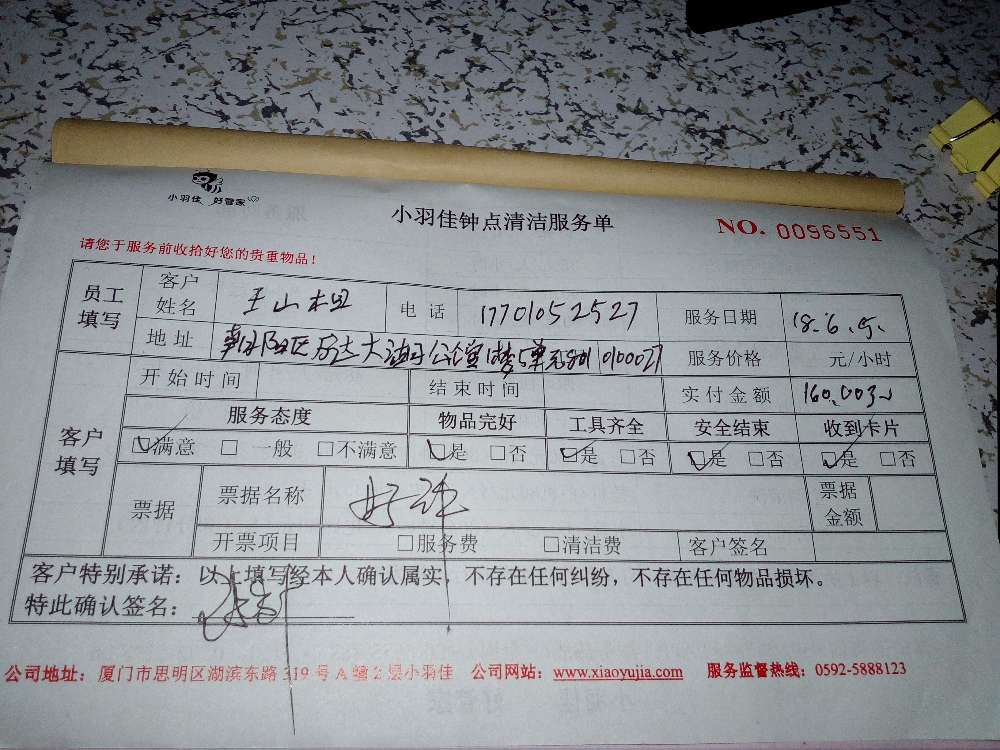 小羽佳 好管家
小羽佳钟点清洁服务单
NO. 0056551
请您于服务前收拾好您的贵重物品!
员工填写 客户姓名 电话 17701052527 服务日期 18.6.5.
地址 朝阳区 服务价格 元/小时
客户填写 开始时间 结束时间 实付金额 160.00
服务态度 物品完好 工具齐全 安全结束 收到卡片
☑满意 □一般 □不满意 ☑是 □否 ☑是 □否 ☑是 □否 ☑是 □否
票据 票据名称 好评 票据金额
开票项目 □服务费 □清洁费 客户签名
客户特别承诺：以上填写经本人确认属实，不存在任何纠纷，不存在任何物品损坏。
特此确认签名：
公司地址：厦门市思明区湖滨东路319号A幢2层小羽佳 公司网站：www.xiaoyujia.com 服务监督热线：0592-5888123